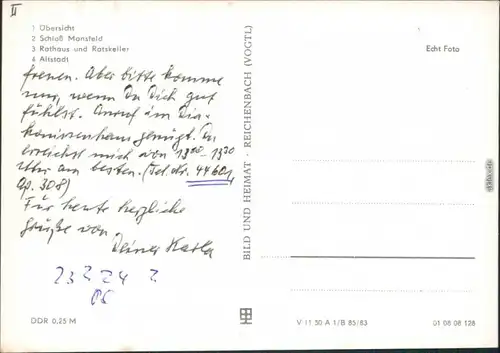 II
1 Übersicht
2 Schloß Mansfeld
3 Rathaus und Ratskeller
4 Altstadt
Echt Foto
freuen. Aber bitte komme
nur, wenn Du Dich gut
fühlst. Anruf im Dia-
konissenhaus genügt. Du
erreichst mich von 13⁰⁰-13³⁰
Uhr am besten. (Tel. Nr. 44601,
Ap. 308)
Für heute herzliche
Grüße von
Deiner Karla
23 2 24 2
BILD UND HEIMAT · REICHENBACH (VOGTL)
DDR 0,25 M
V 11 50 A 1/B 85/83
01 08 08 128